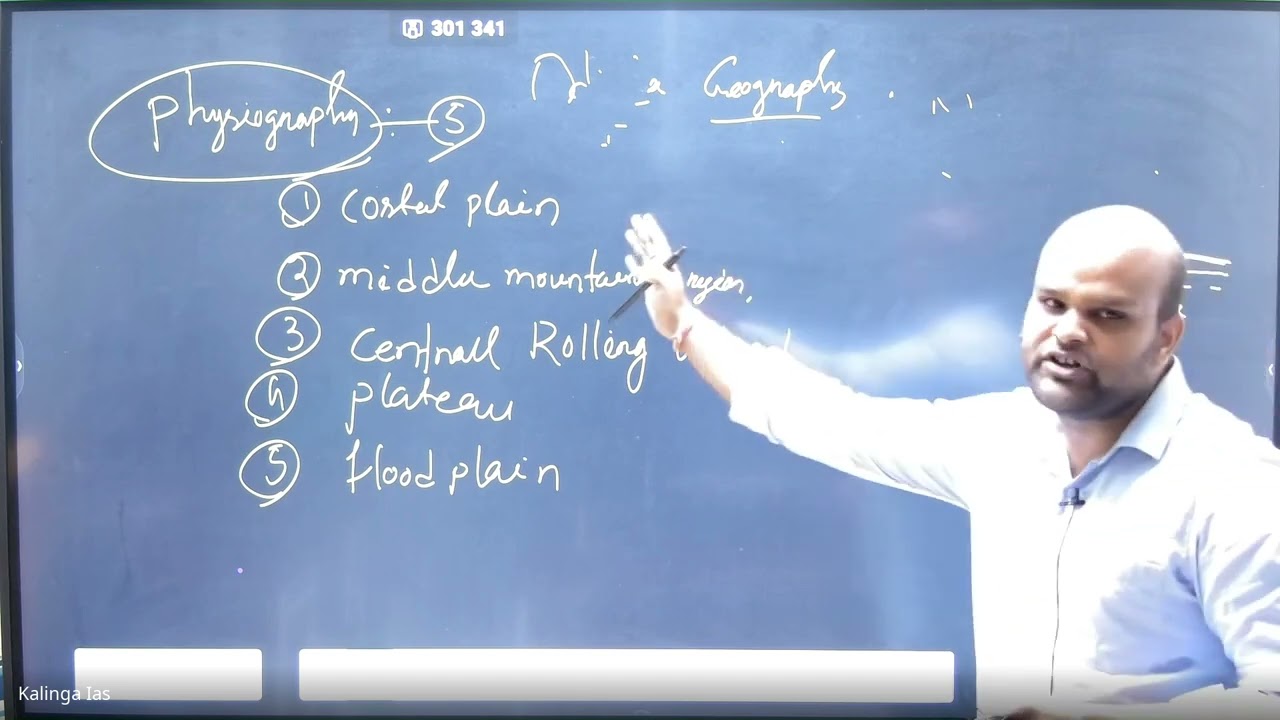 301 341
Geography
Physiography : 5
1 Costal plain
2 middle mountain region,
3 Central Rolling
4 plateau
5 flood plain
Kalinga Ias